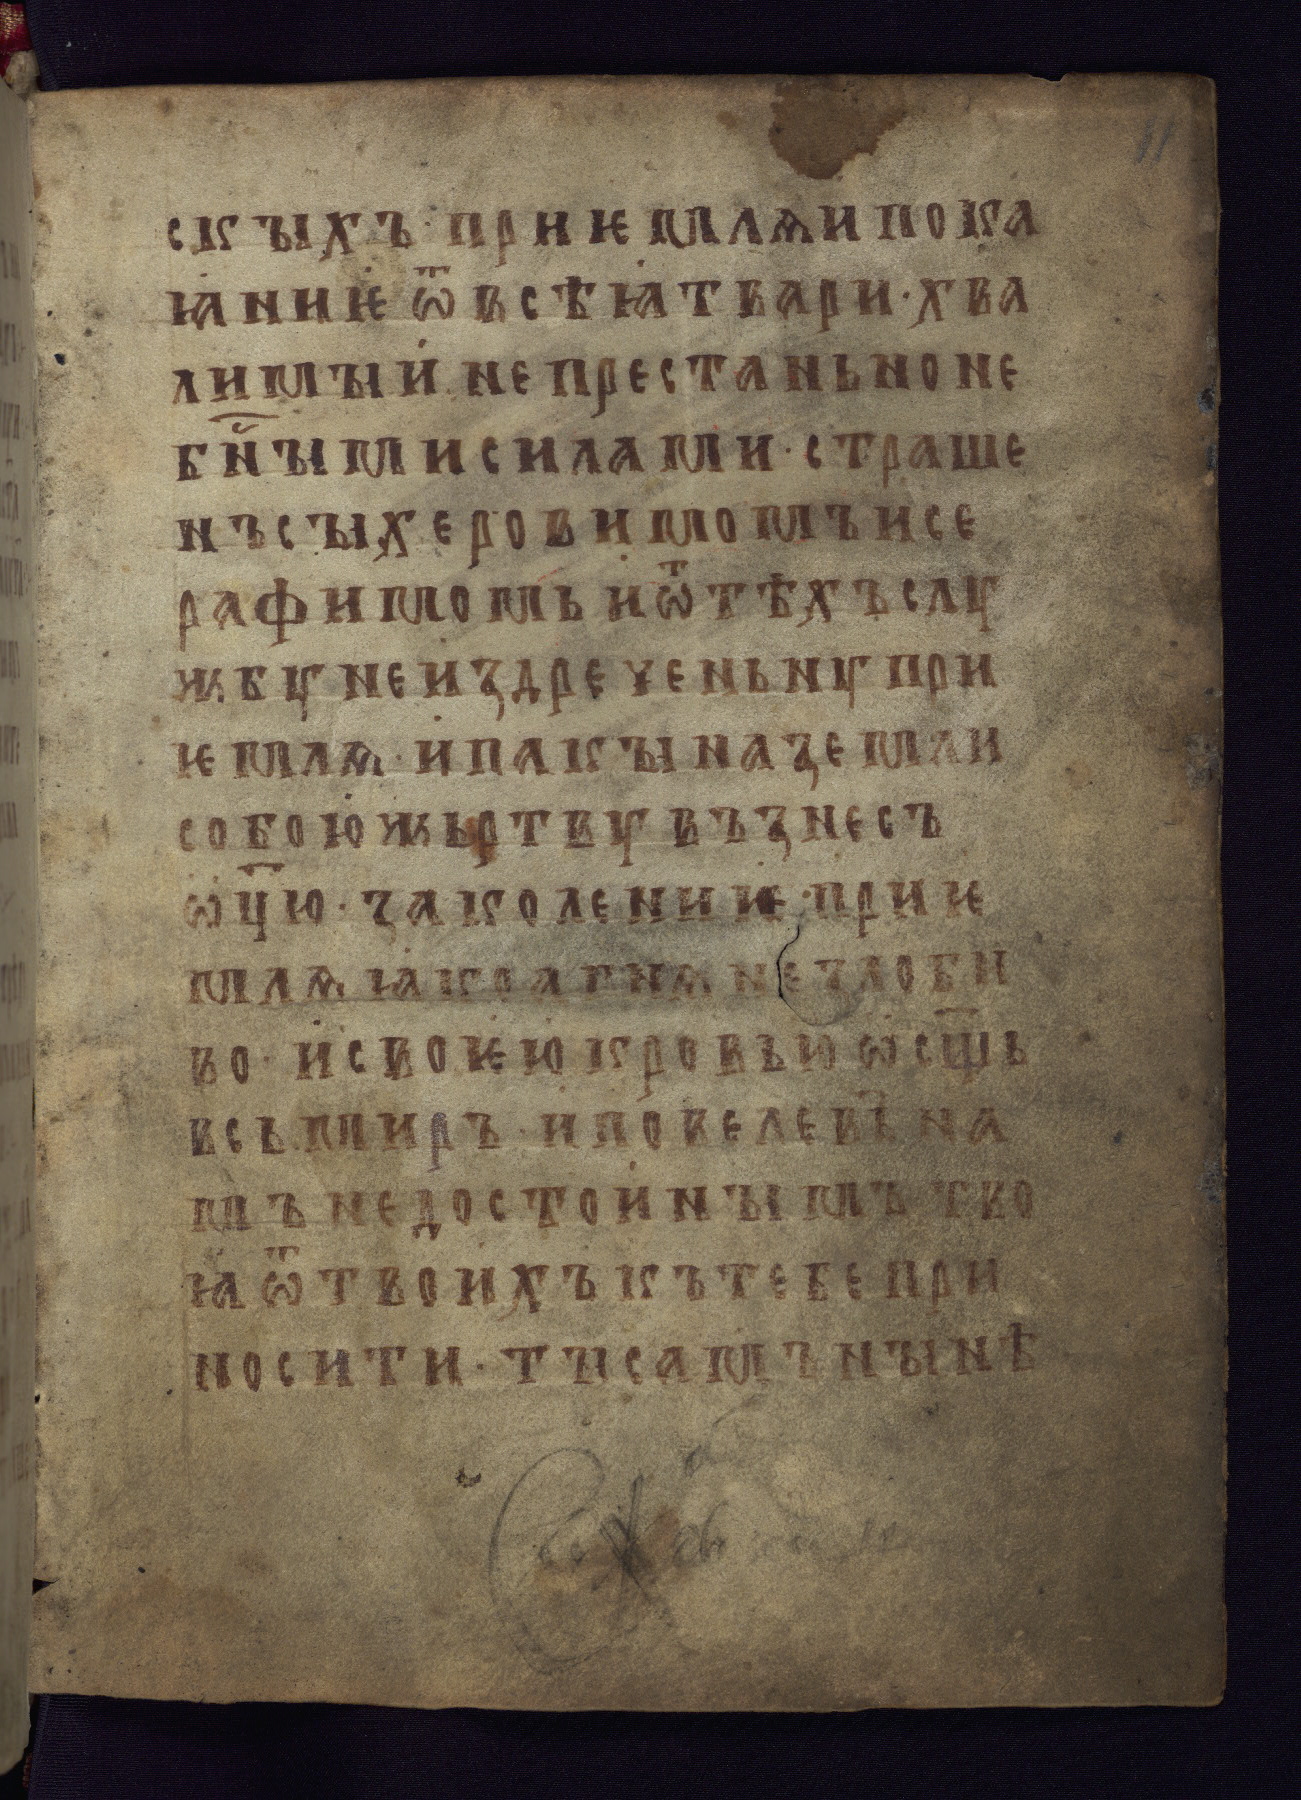 скꙑхъ· приѥмлѧи пока
ꙗниѥ ѿ всѣꙗ твари· хва
лимꙑи непрестаньно не
бн҃ꙑми силами· страше
нъ сꙑ херовимомъ и се
рафимомь и ѿ тѣхъ слꙋ
жбꙋ неиздреченьнꙋ при
ѥмлѧ· и пакꙑ на земли
собою жьртвꙋ възнесъ
ѡц҃ю· заколениѥ· приѥ
млѧ ꙗко агнѧ незлоби
во· и своѥю кровью ѡсщ҃ь
всь миръ· и повелевъ на
мъ недостоинꙑмъ тво
ꙗ ѿ твоихъ къ тебе при
носити· тꙑ самъ нꙑнѣ
11